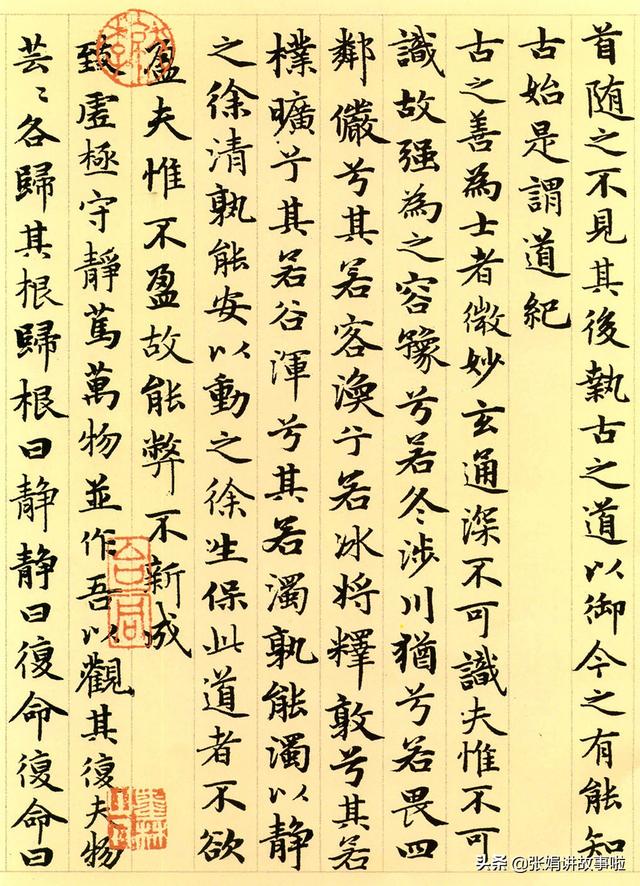 首随之不見其後執古之道以御今之有能知
古始是謂道紀
古之善為士者微妙玄通深不可識夫惟不可
識故强為之容豫兮若冬涉川猶兮若畏四
鄰儼兮其若客渙兮若冰將釋敦兮其若
樸曠兮其若谷渾兮其若濁孰能濁以靜
之徐清孰能安以動之徐生保此道者不欲
盈夫惟不盈故能弊不新成
致虛極守靜篤萬物並作吾以觀其復夫物
芸〻各歸其根歸根曰静静曰復命復命曰
头条 @张娟讲故事啦